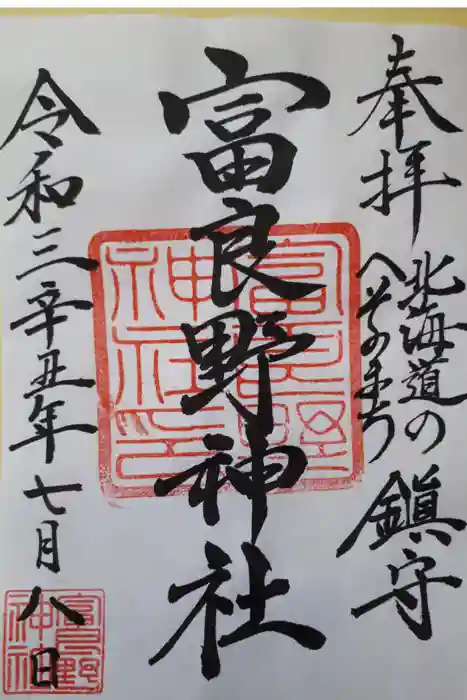 奉拝
北海道の
へそのまち
鎮守
富良野神社
令和三辛丑年七月八日
富良野
神社印
富良野
神社